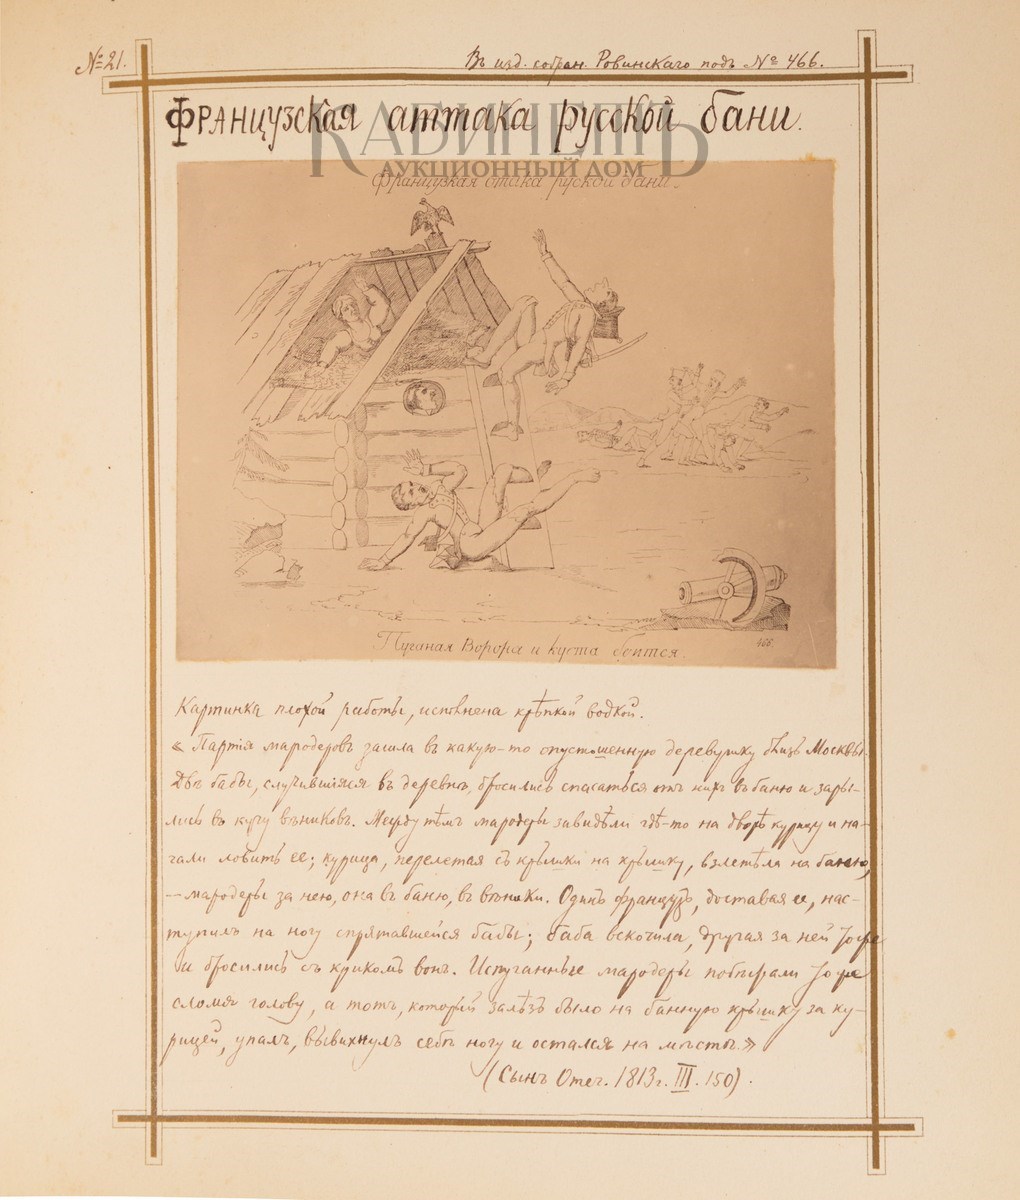 № 21.
Въ изд. собран. Ровинскаго подъ № 466.
Французская аттака русской бани.
КАБИНЕТЪ
АУКЦИОННЫЙ ДОМ
Французкая атака руской бани.
Пуганая Ворора и куста боится.
466.
Картинка плохой работы, исполнена крѣпкой водкой.
« Партія мародеровъ зашла въ какую-то опустошенную деревушку близъ Москвы.
Двѣ бабы, случившіяся въ деревнѣ, бросились спасаться отъ нихъ въ баню и зары-
лись въ кучу вѣниковъ. Между тѣмъ мародеры завидѣли гдѣ-то на дворѣ курицу и на-
чали ловить ее; курица, перелетая съ крышки на крышку, взлетѣла на баню,
— мародеры за нею, она въ баню, въ вѣники. Одинъ французъ, доставая ее, нас-
тупилъ на ногу спрятавшейся бабы; баба вскочила, другая за ней тоже
и бросились съ крикомъ вонъ. Испуганные мародеры побѣжали тоже
сломя голову, а тотъ, который залѣзъ было на банную крышку за ку-
рицей, упалъ, вывихнулъ себѣ ногу и остался на мѣстѣ.»
(Сынъ Отеч. 1813 г. III. 150).